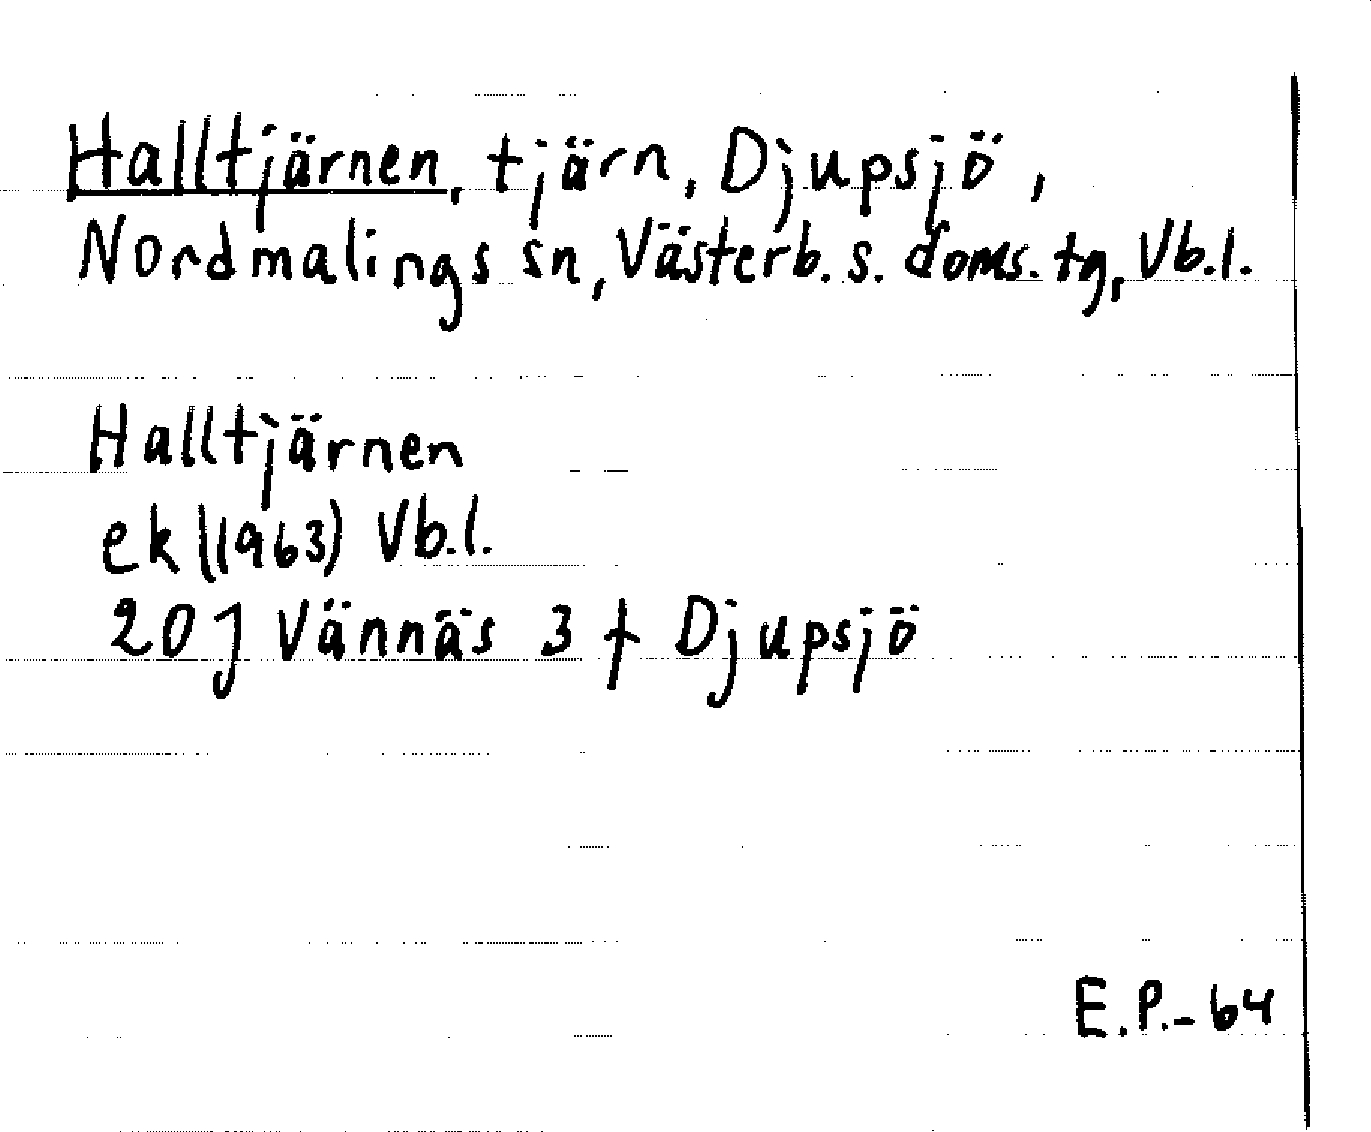 Halltjärnen, tjärn, Djupsjö,
Nordmalings sn, Västerb. s. doms. tg, Vb.l.
Halltjärnen
ek (1963) Vb.l.
20 J Vännäs 3 f Djupsjö
E.P.-64